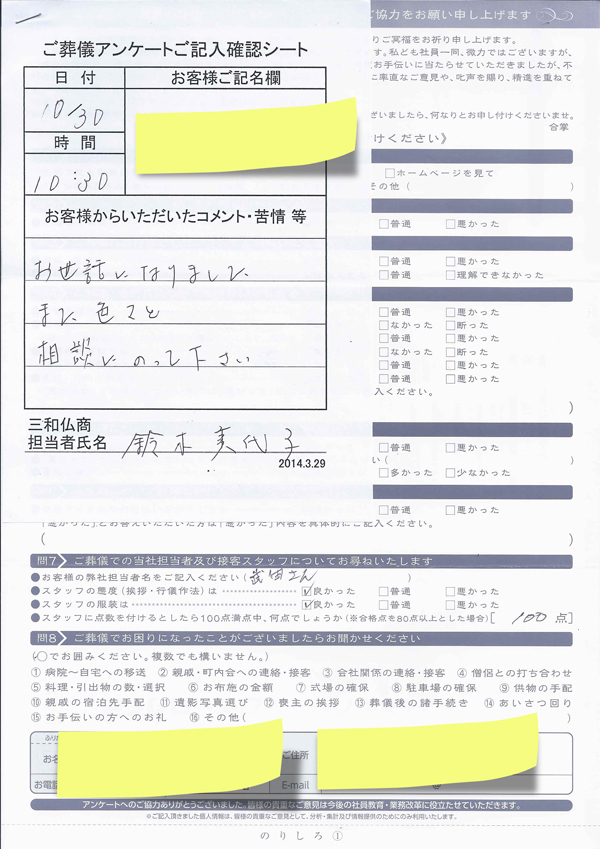 ご葬儀アンケートご記入確認シート
日付
お客様ご記名欄
10/30
時間
10:30
お客様からいただいたコメント・苦情 等
お世話になりました
また色々と
相談にのって下さい
三和仏商
担当者氏名 鈴木美代子
2014.3.29
ご協力をお願い申し上げます
りご冥福をお祈り申し上げます。
す。私ども社員一同、微力ではございますが、
お手伝いに当たらせていただきましたが、不
に率直なご意見や、叱声を賜り、精進を重ねて
ざいましたら、何なりとお申し付けくださいませ。
合掌
けください》
□ホームページを見て
その他( )
□普通 □悪かった
□普通 □悪かった
□普通 □理解できなかった
□普通 □悪かった
□なかった □断った
□普通 □悪かった
□なかった □断った
□普通 □悪かった
□普通 □悪かった
入ください。
)
□普通 □悪かった
い( )
□多かった □少なかった
□普通 □悪かった
「悪かった」とお答えいただいた方は「悪かった」内容を具体的にご記入ください。
( )
問7 ご葬儀での当社担当者及び接客スタッフについてお尋ねいたします
●お客様の弊社担当者名をご記入ください(武田さん )
●スタッフの態度(挨拶・行儀作法)は ☑良かった □普通 □悪かった
●スタッフの服装は ☑良かった □普通 □悪かった
●スタッフに点数を付けるとしたら100点満点中、何点でしょうか(※合格点を80点以上とした場合)[ 100 点]
問8 ご葬儀でお困りになったことがございましたらお聞かせください
(○でお囲みください。複数でも構いません。)
①病院〜自宅への移送 ②親戚・町内会への連絡・接客 ③会社関係の連絡・接客 ④僧侶との打ち合わせ
⑤料理・引出物の数・選択 ⑥お布施の金額 ⑦式場の確保 ⑧駐車場の確保 ⑨供物の手配
⑩親戚の宿泊先手配 ⑪遺影写真選び ⑫喪主の挨拶 ⑬葬儀後の諸手続き ⑭あいさつ回り
⑮お手伝いの方へのお礼 ⑯その他( )
ふり
お名
ご住所
お電話
E-mail
アンケートへのご協力ありがとうございました。皆様の貴重なご意見は今後の社員教育・業務改革に役立たせていただきます。
※ご記入頂きました個人情報は、皆様の貴重なご意見として、分析・集計及び情報提供のためにのみ利用いたします。
のりしろ①